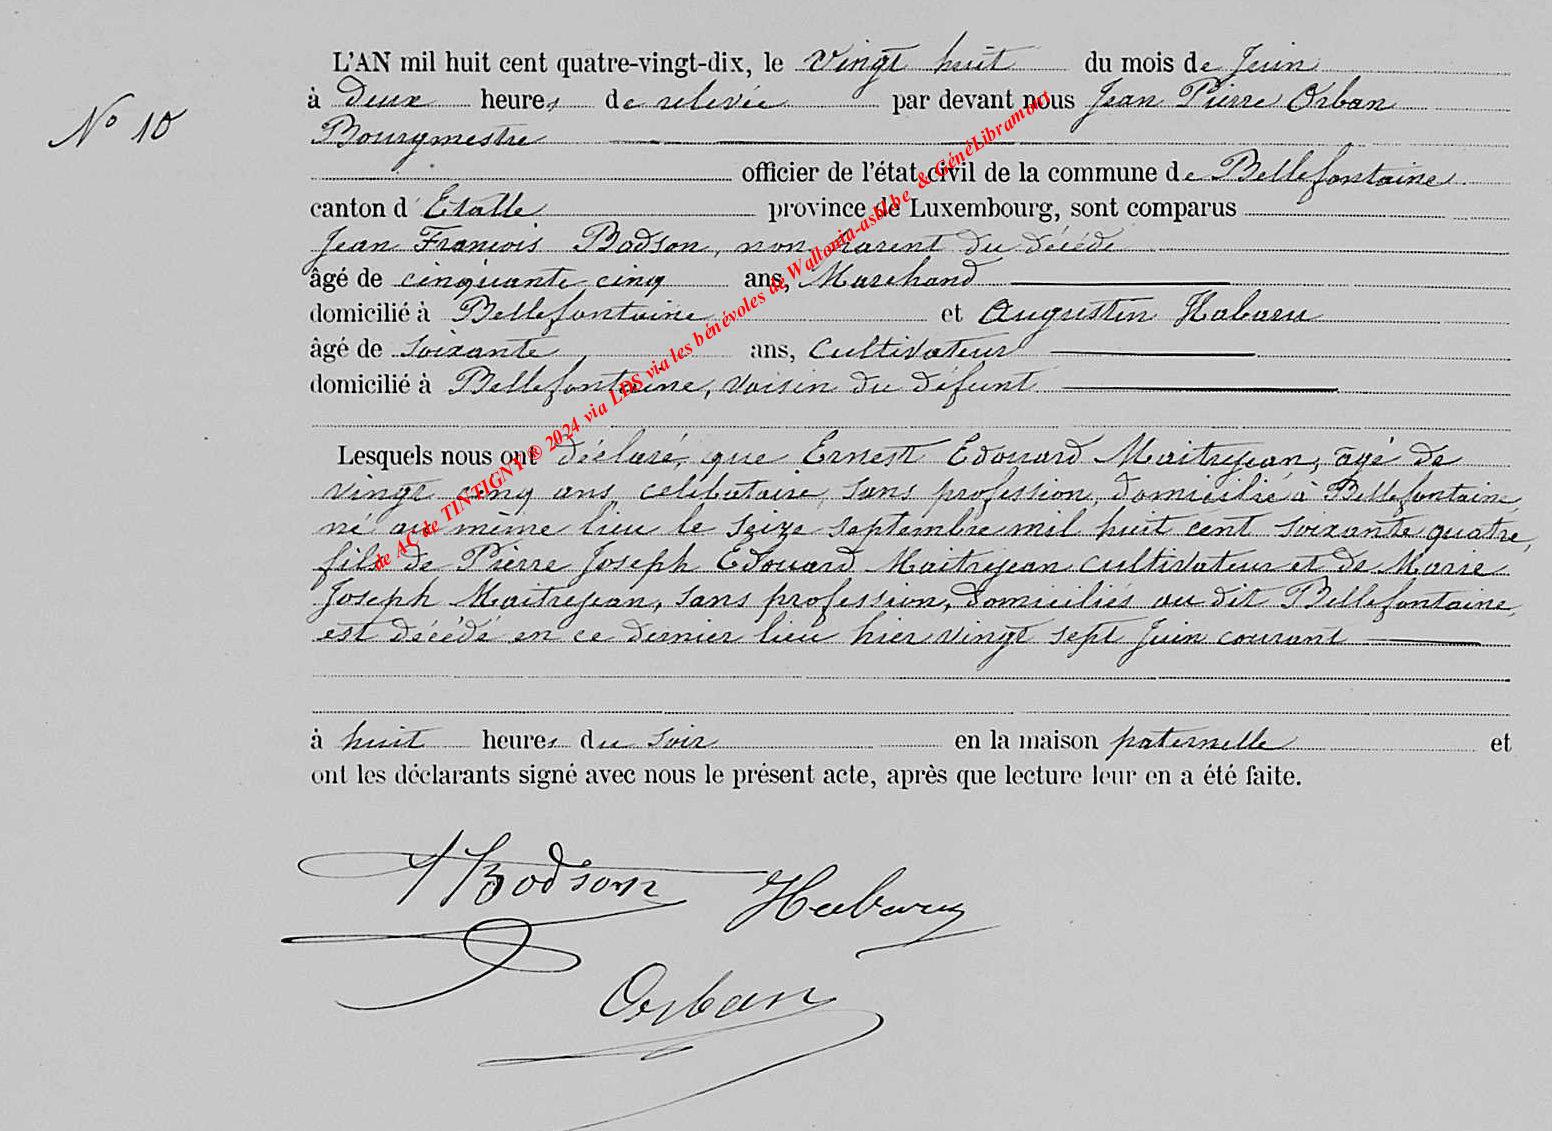 L'AN mil huit cent quatre-vingt-dix, le vingt huit du mois de Juin
à deux heures de relevée par devant nous Jean Pierre Orban
N° 10
Bourgmestre
officier de l'état civil de la commune de Bellefontaine
canton d'Etalle province de Luxembourg, sont comparus
Jean François Bodson, non parent du décédé
âgé de cinquante cinq ans, Marchand
domicilié à Bellefontaine et Augustin Habaru
âgé de soixante ans, Cultivateur
domicilié à Bellefontaine, voisin du défunt
Lesquels nous ont déclaré, que Ernest Edouard Maitrejean, agé de
vingt cinq ans, célibataire, sans profession, domicilié à Bellefontaine,
né au même lieu le seize septembre mil huit cent soixante quatre,
fils de Pierre Joseph Edouard Maitrejean cultivateur et de Marie
Joseph Maitrejean, sans profession, domiciliés au dit Bellefontaine,
est décédé en ce dernier lieu hier vingt sept Juin courant
à huit heures du soir en la maison paternelle et
ont les déclarants signé avec nous le présent acte, après que lecture leur en a été faite.
JBodson Habaru
Orban
de AC de TINTIGNY ® 2024 via LDS via les bénévoles de Wallonia-asbl.be & GénéLibramont